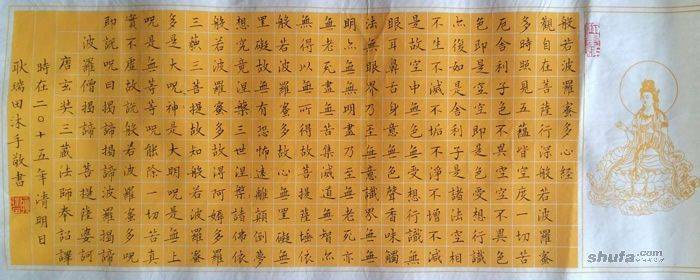 般若波羅蜜多心經
觀自在菩薩行深般若波羅蜜
多時照見五蘊皆空度一切苦
厄舍利子色不異空空不異色
色即是空空即是色受想行識
亦復如是舍利子是諸法空相
不生不滅不垢不淨不增不減
是故空中無色無受想行識無
眼耳鼻舌身意無色聲香味觸
法無眼界乃至無意識界無無
明亦無無明盡乃至無老死亦
無老死盡無苦集滅道無智亦
無得以無所得故菩提薩埵依
般若波羅蜜多故心無罣礙無
罣礙故無有恐怖遠離顛倒夢
想究竟涅槃三世諸佛依
般若波羅蜜多故得阿耨多羅
三藐三菩提故知般若波羅蜜
多是大呪神是大明呪是無上
呪是無等等呪能除一切苦真
實不虛故說般若波羅蜜多呪
即說呪曰揭諦揭諦波羅揭諦
波羅僧揭諦 菩提薩婆訶
唐玄奘三藏法師奉詔譯
時在二〇十五年清明日
耿瑞田沐手敬書
shufa.com